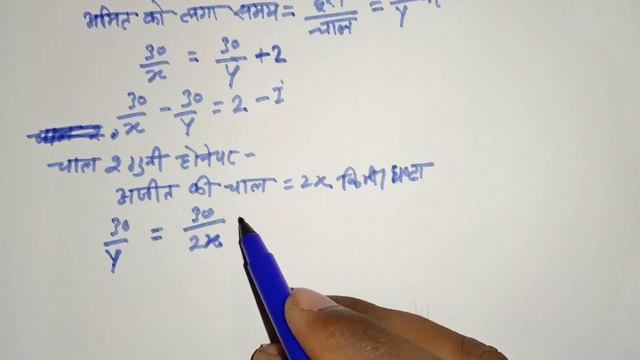 अमित को लगा समय = दूरी/चाल = 30/y
30/x = 30/y + 2
30/x - 30/y = 2 - I
चाल 2 गुनी होनेपर -
अजीत की चाल = 2x किमी/घण्टा
30/y = 30/2x